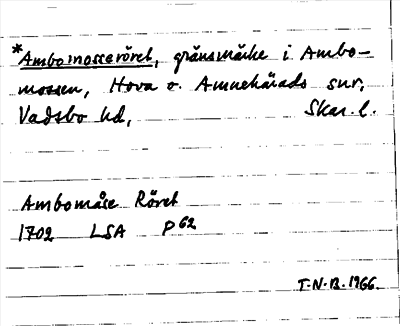 *Ambomosseröret, gränsmärke i Ambo-
mossen, Hova o. Amnehärads snr,
Vadsbo hd, Skar. l.
Ambomåse Röret
1702 LSA P62
T.N.B. 1966.